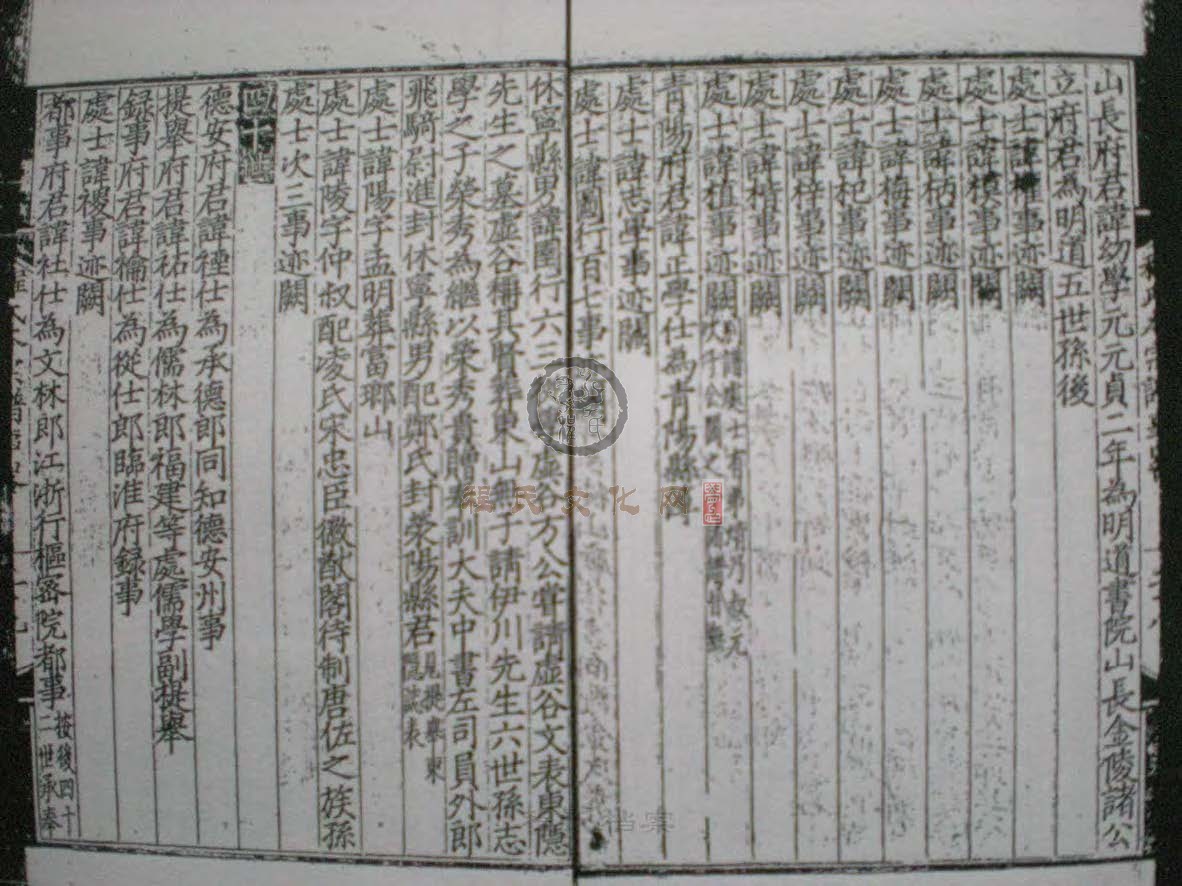 山長府君諱幼學元元貞二年為明道書院山長金陵諸公
立府君為明道五世孫後
處士諱權事迹闕
處士諱模事迹闕
處士諱栝事迹闕
處士諱梅事迹闕
處士諱杞事迹闕
處士諱梓事迹闕
處士諱楷事迹闕
處士諱植事迹闕
青陽府君諱正學仕為青陽縣
處士諱志學事迹闕
處士諱圓行百七事
休寧縣男諱圍行六三 虛谷方公嘗請虛谷文表東隱
先生之墓虛谷稱其賢葬東山無子請伊川先生六世孫志
學之子榮秀為繼以榮秀貴贈奉訓大夫中書左司員外郎
飛騎尉進封休寧縣男配鄭氏封滎陽縣君
處士諱陽字孟明葬富瑯山
處士諱陵字仲叔配凌氏宋忠臣徽猷閣待制唐佐之族孫
處士次三事迹闕
四十世
德安府君諱禋仕為承德郎同知德安州事
提舉府君諱祐仕為儒林郎福建等處儒學副提舉
錄事府君諱禴仕為從仕郎臨淮府録事
處士諱禝事迹闕
都事府君諱社仕為文林郎江浙行樞密院都事按後四十二世承奉
程氏文化网
档案